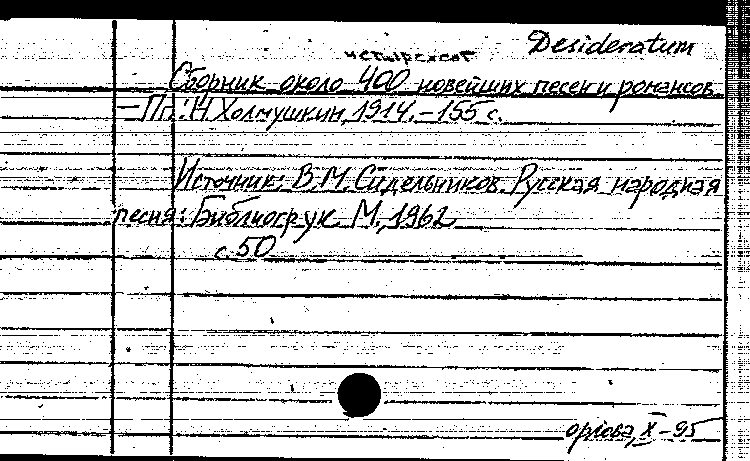 Desideratum
четырехсот
Сборник около 400 новейших песен и романсов.
— Пг.: Н. Холмушкин, 1914. – 155 с.
Источник: В.М. Сидельников. Русская народная
песня: Библиогр. ук. М., 1962
с. 50
орлова, X – 95